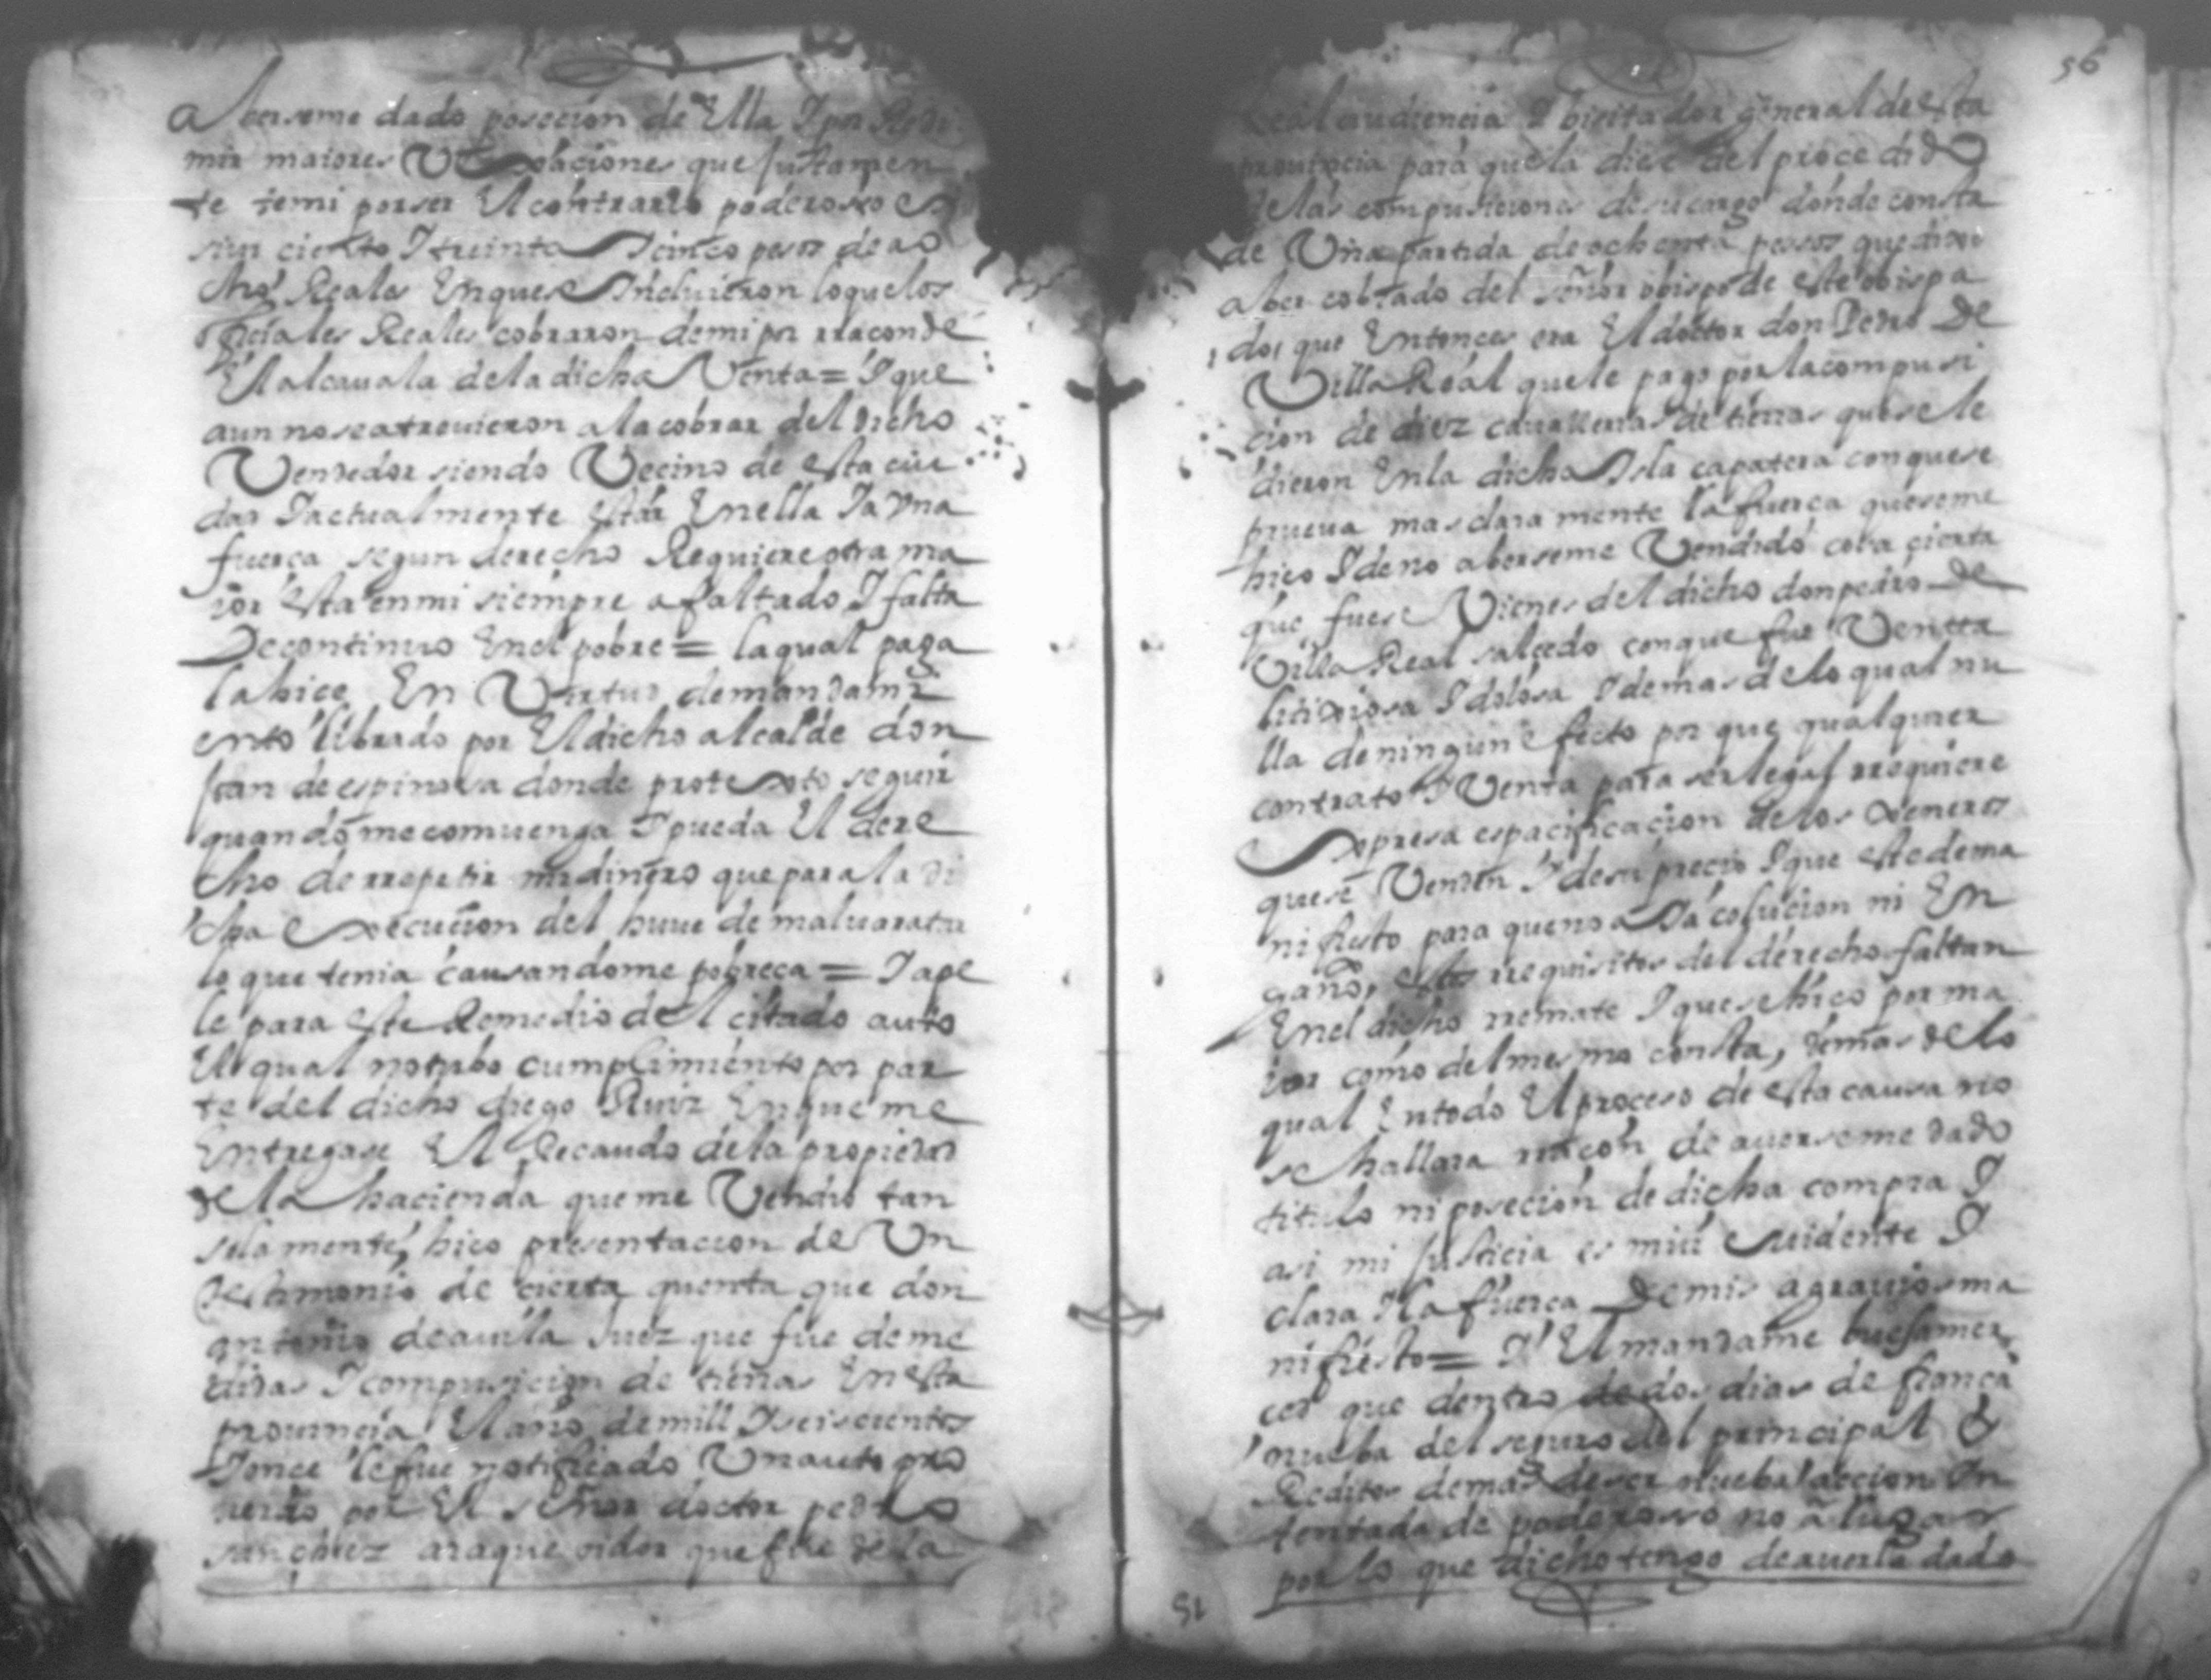 aberseme dado poseción de Ella I por Redi
mir maiores Vexaciones que justamen
te temi por ser El contrario poderosso
ciento I treinta I cinco pesos de a o
cho Reales En que se Incluieron lo que los
oficiales Reales cobraron de mi por rracon de
El alcauala de la dicha Venta = I que
aun no se atreuieron a la cobrar del dicho
Vendedor siendo Vecino de esta ciu
dad I actualmente estar En ella I a Vna
fuerça segun derecho Requiere otra ma
ior esta en mi siempre a faltado I falta
De continuo En el pobre = la qual paga
la hice En Virtud de mandami
ento librado por El dicho alcalde don
Juan de espinosa donde protexto seguir
quando me comuenga I pueda El dere
cho de rrepetir mi dinero que para la di
cha Execucion del huue de maluaratar
lo que tenia causandome pobreça = I ape
le para este Remedio del citado auto
El qual no tubo cumplimiento por par
te del dicho diego Ruiz En que me
Entregase El Recaudo de la propiedad
de la hacienda que me Vendio tan
solamente, hico presentacion de Un
testimonio de cierta quenta que don
antonio de auila Juez que fue de me
didas I compusicion de tierras En esta
prouincia El año de mill I seiscientos
I once le fue notificado Un auto pro
ueido por El señor doctor pedro
sanchez araque oidor que fue de la
56
Real audiencia I bisitador general de esta
prouincia para que la diese del procedido
de las compusiciones de su cargo donde consta
de Una partida de ochenta pessos que dixo
aber cobrado del señor obispo de este obispa
do, que Entonces era El doctor don Pedro De
Villa Real que le pago por la compusi
cion de diez cauallerias de tierras que se le
dieron En la dicha Isla capatera con que se
prueua mas clara mente la fuerça que se me
hico I de no aberseme Vendido cosa cierta
que fuese Vienes del dicho don pedro de
Villa Real salcedo con que fue Venta
litixiosa I dolosa I demas de lo qual nu
lla de ningun efecto por que qualquier
contrato I Venta para ser legal rrequiere
Expresa espacificacion de los Xeneros
que se Venden I de su precio I que este de ma
nifiesto para que no aIa colucion ni En
gaño, estos rrequisitos del derecho faltan
En el dicho rremate I que se hico por ma
ior como del mesmo consta, demas de lo
qual En todo El proceso de esta causa no
se hallara rracon de auerseme dado
titulo ni posecion de dicha compra I
asi mi justicia es mui euidente I
clara I la fuerça De mis agrauios ma
nifiesto = I El mandame buesa mer
ced que dentro de dos dias de fiança
nueba del seguro del principal &
Reditos demas de ser nueba accion In
tentada de poderosso no a lugar
por lo que dicho tengo de auerla dado
51